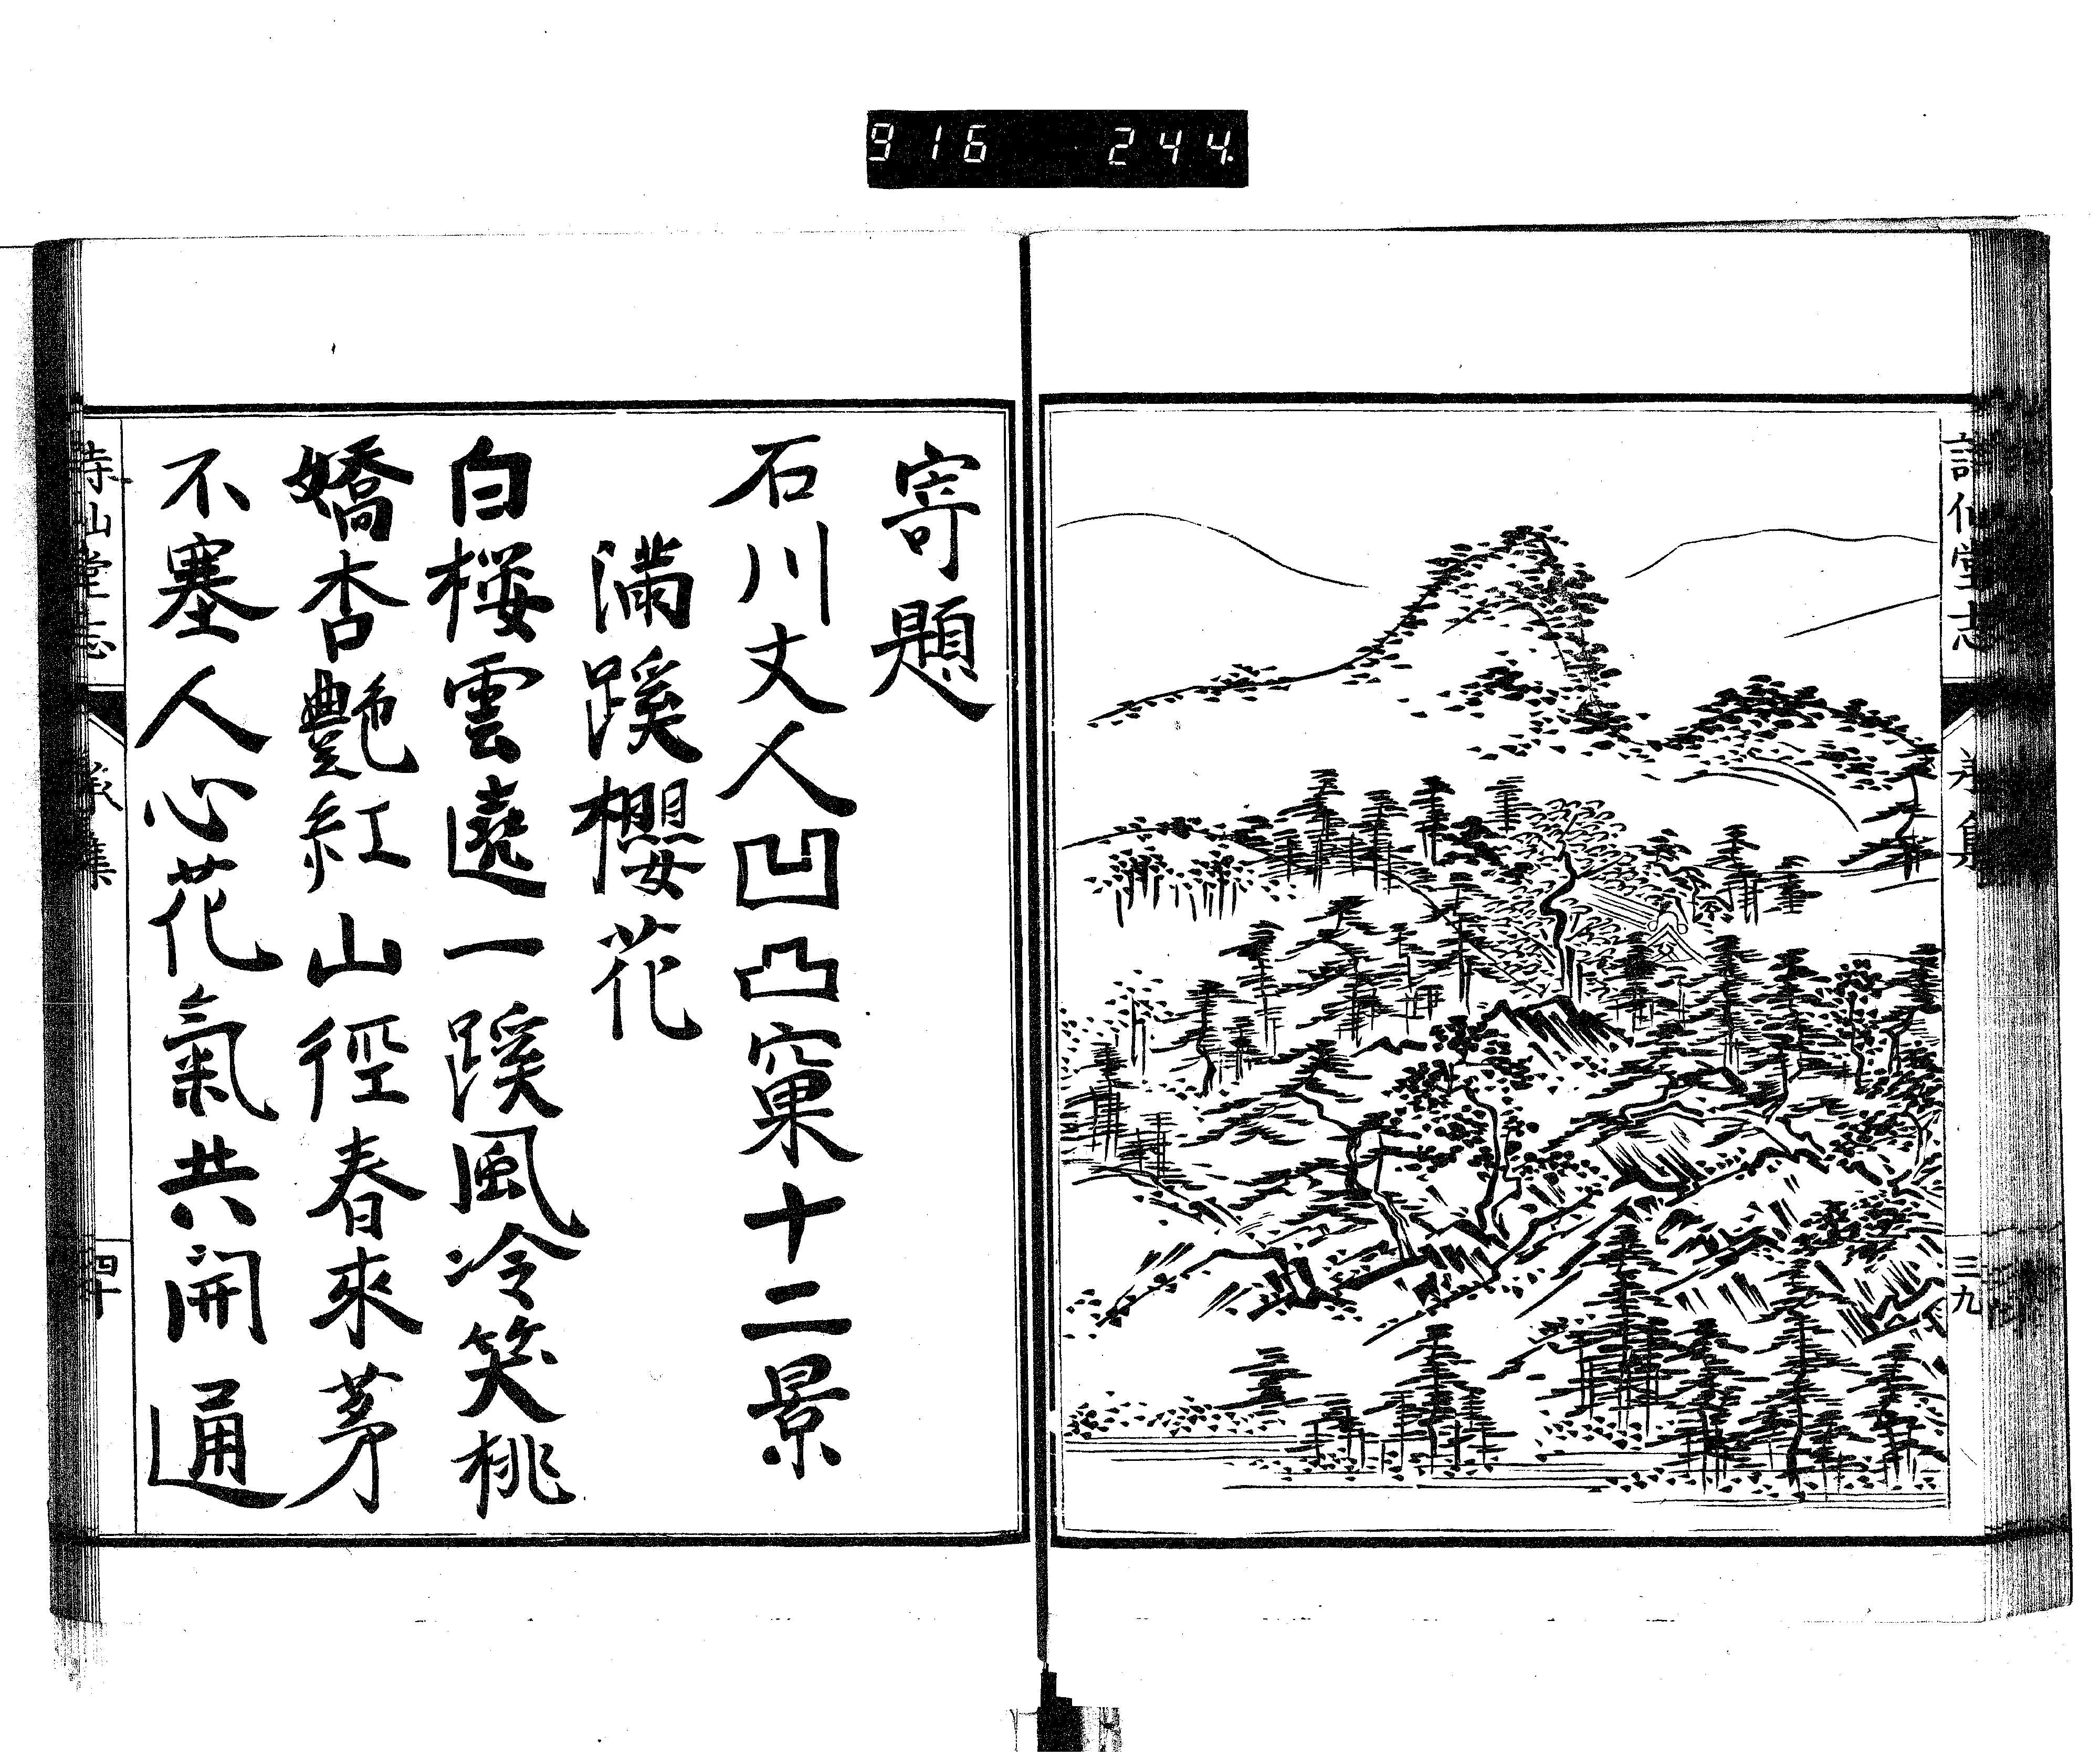 916 244
詩仙堂志
三九
寄題
石川丈人凹凸窠十二景
滿蹊櫻花
白桜雲遶一蹊風冷笑桃
嬌杏艶紅山徑春來茅
不塞人心花氣共開通
四十